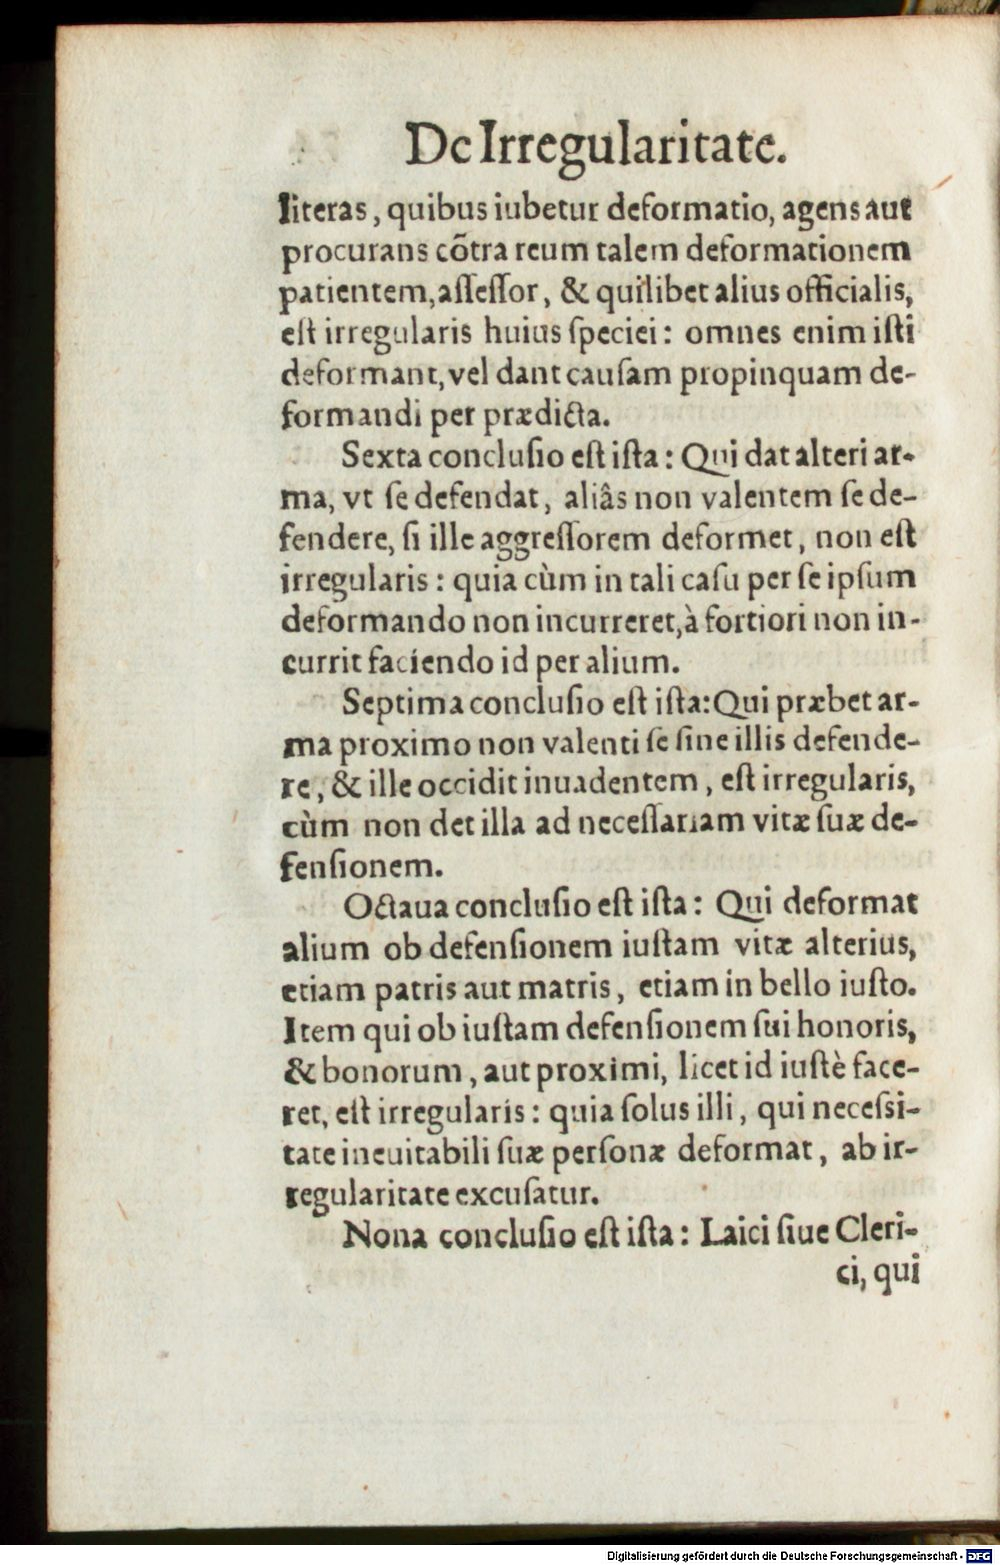 De Irregularitate.
literas, quibus iubetur deformatio, agens aut
procurans cõtra reum talem deformationem
patientem, aſſeſſor, & quilibet alius officialis,
eſt irregularis huius ſpeciei: omnes enim iſti
deformant, vel dant cauſam propinquam de-
formandi per prædicta.
Sexta concluſio eſt iſta: Qui dat alteri ar-
ma, vt ſe defendat, aliâs non valentem ſe de-
fendere, ſi ille aggreſſorem deformet, non eſt
irregularis: quia cùm in tali caſu per ſe ipſum
deformando non incurreret, à fortiori non in-
currit faciendo id per alium.
Septima concluſio eſt iſta: Qui præbet ar-
ma proximo non valenti ſe ſine illis defende-
re, & ille occidit inuadentem, eſt irregularis,
cùm non det illa ad neceſſariam vitæ ſuæ de-
fenſionem.
Octaua concluſio eſt iſta: Qui deformat
alium ob defenſionem iuſtam vitæ alterius,
etiam patris aut matris, etiam in bello iuſto.
Item qui ob iuſtam defenſionem ſui honoris,
& bonorum, aut proximi, licet id iuſtè face-
ret, eſt irregularis: quia ſolus illi, qui neceſsi-
tate ineuitabili ſuæ perſonæ deformat, ab ir-
regularitate excuſatur.
Nona concluſio eſt iſta: Laici ſiue Cleri-
ci, qui
Digitalisierung gefördert durch die Deutsche Forschungsgemeinschaft - DFG